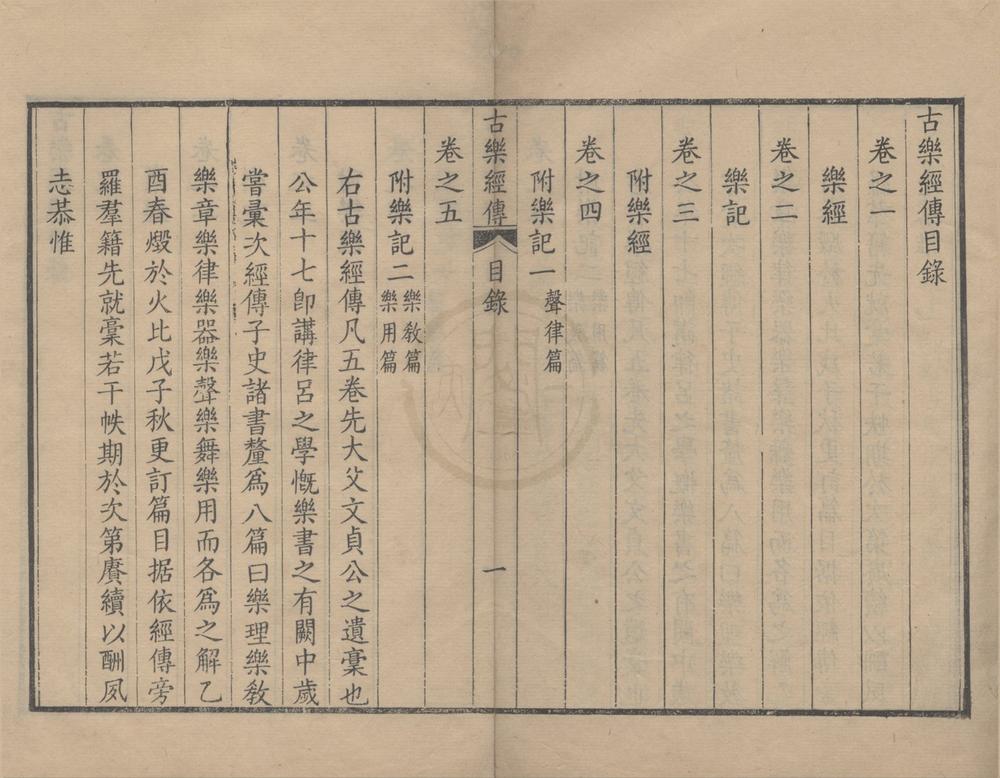 古樂經傳目錄
卷之一
樂經
卷之二
樂記
卷之三
附樂經
卷之四
附樂記一 聲律篇
古樂經傳 目錄 一
卷之五
附樂記二 樂敎篇 樂用篇
右古樂經傳凡五卷先大父文貞公之遺稾也
公年十七卽講律呂之學慨樂書之有闕中歲
嘗彙次經傳子史諸書釐爲八篇曰樂理樂敎
樂章樂律樂器樂聲樂舞樂用而各爲之解乙
酉春燬於火比戊子秋更訂篇目据依經傳旁
羅羣籍先就稾若干帙期於次第賡續以酬夙
志恭惟